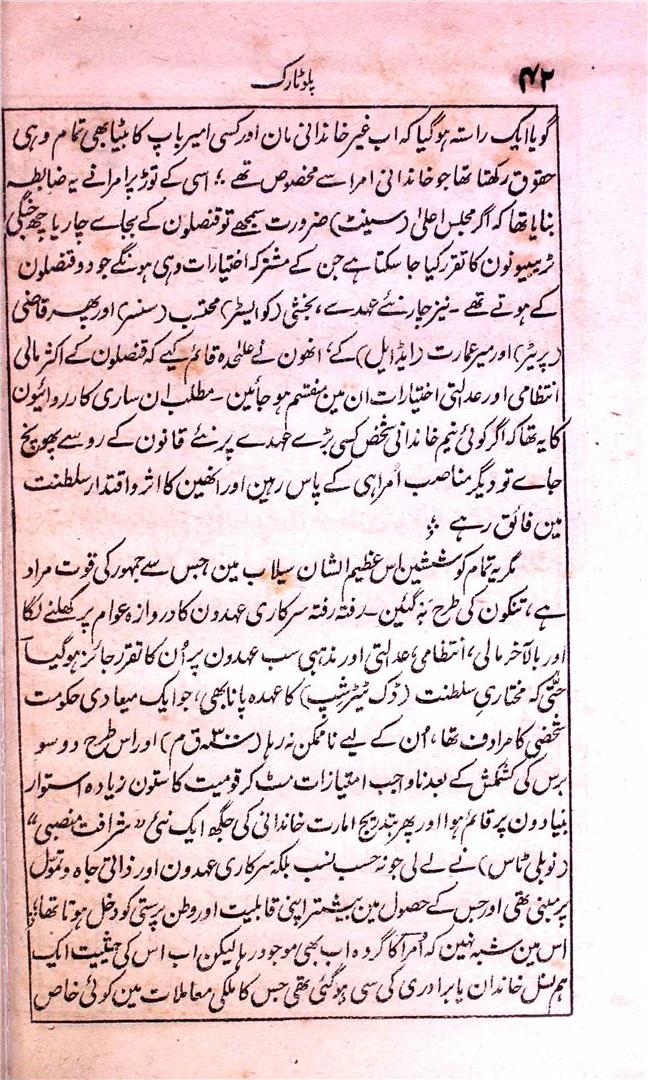 ۴۲
پلوٹارک
گویا ایک راستہ ہوگیا کہ اب غیر خاندانی مان اور کسی امیر باپ کا بیٹا بھی تمام وہی
حقوق رکھتا تھا جو خاندانی امرا سے مخصوص تھے ؛ اسی کے توڑ پر امرانے یہ ضابطہ
بنایا تھا کہ اگر مجلس اعلیٰ (سینٹ) ضرورت سمجھے تو قنصلون کے بجاے چار یا چھ جنگی
ٹریبیونون کا تقرر کیا جا سکتا ہے جن کے مشترکہ اختیارات وہی ہونگے جو دو قنصلون
کے ہوتے تھے ۔ نیز چار نئے عہدے، بخشی (کوایسٹر) محتسب (سنسر) اور پھر قاضی
(پریٹر) اور میر عمارت (ایڈایل) کے، انھون نے علیٰحدہ قائم کیے کہ قنصلون کے اکثر مالی
انتظامی اور عدالتی اختیارات ان مین منقسم ہو جائین ۔ مطلب ان ساری کارروائیون
کا یہ تھا کہ اگر کوئی نیم خاندانی شخص کسی بڑے عہدے پر نئے قانون کے رو سے پھونچ
جاے تو دیگر مناصب اُمرا ہی کے پاس رہین اور انھین کا اثر و اقتدار سلطنت
مین فائق رہے ؛
مگر یہ تمام کوششین اس عظیم الشان سیلاب مین جس سے جمہور کی قوت مراد
ہے، تنکون کی طرح بَہ گئین ۔ رفتہ رفتہ سرکاری عہدون کا دروازہ عوام پر کھلنے لگا
اور بالآخر مالی، انتظامی، عدالتی اور مذہبی سب عہدون پر اُن کا تقرر جائز ہوگیا
حتّٰی کہ مختاریِ سلطنت (ڈک ٹیٹرشپ) کا عہدہ پانا بھی، جو ایک میعادی حکومت
شخصی کا مرادف تھا، اُن کے لیے ناممکن نہ رہا (۳۰۰؁ ق م) اور اس طرح دو سو
برس کی کشمکش کے بعد ناواجب امتیازات مٹ کر قومیت کا ستون زیادہ استوار
بنیادون پر قائم ہوا اور پھر بتدریج امارت خاندانی کی جگھ ایک نئی "شرافت منصبی"
(نوبلی ٹاس) نے لے لی جو نہ حسب نسب بلکہ سرکاری عہدون اور ذاتی جاہ و تموّل
پر مبنی تھی اور جس کے حصول مین بیشتر اپنی قابلیت اور وطن پرستی کو دخل ہوتا تھا؛
اس مین شبہ نہین کہ اُمرا کا گروہ اب بھی موجود رہا لیکن اب اس کی حیثیت ایک
ہم نسل خاندان یا برادری کی سی ہوگئی تھی جس کا ملکی معاملات مین کوئی خاص